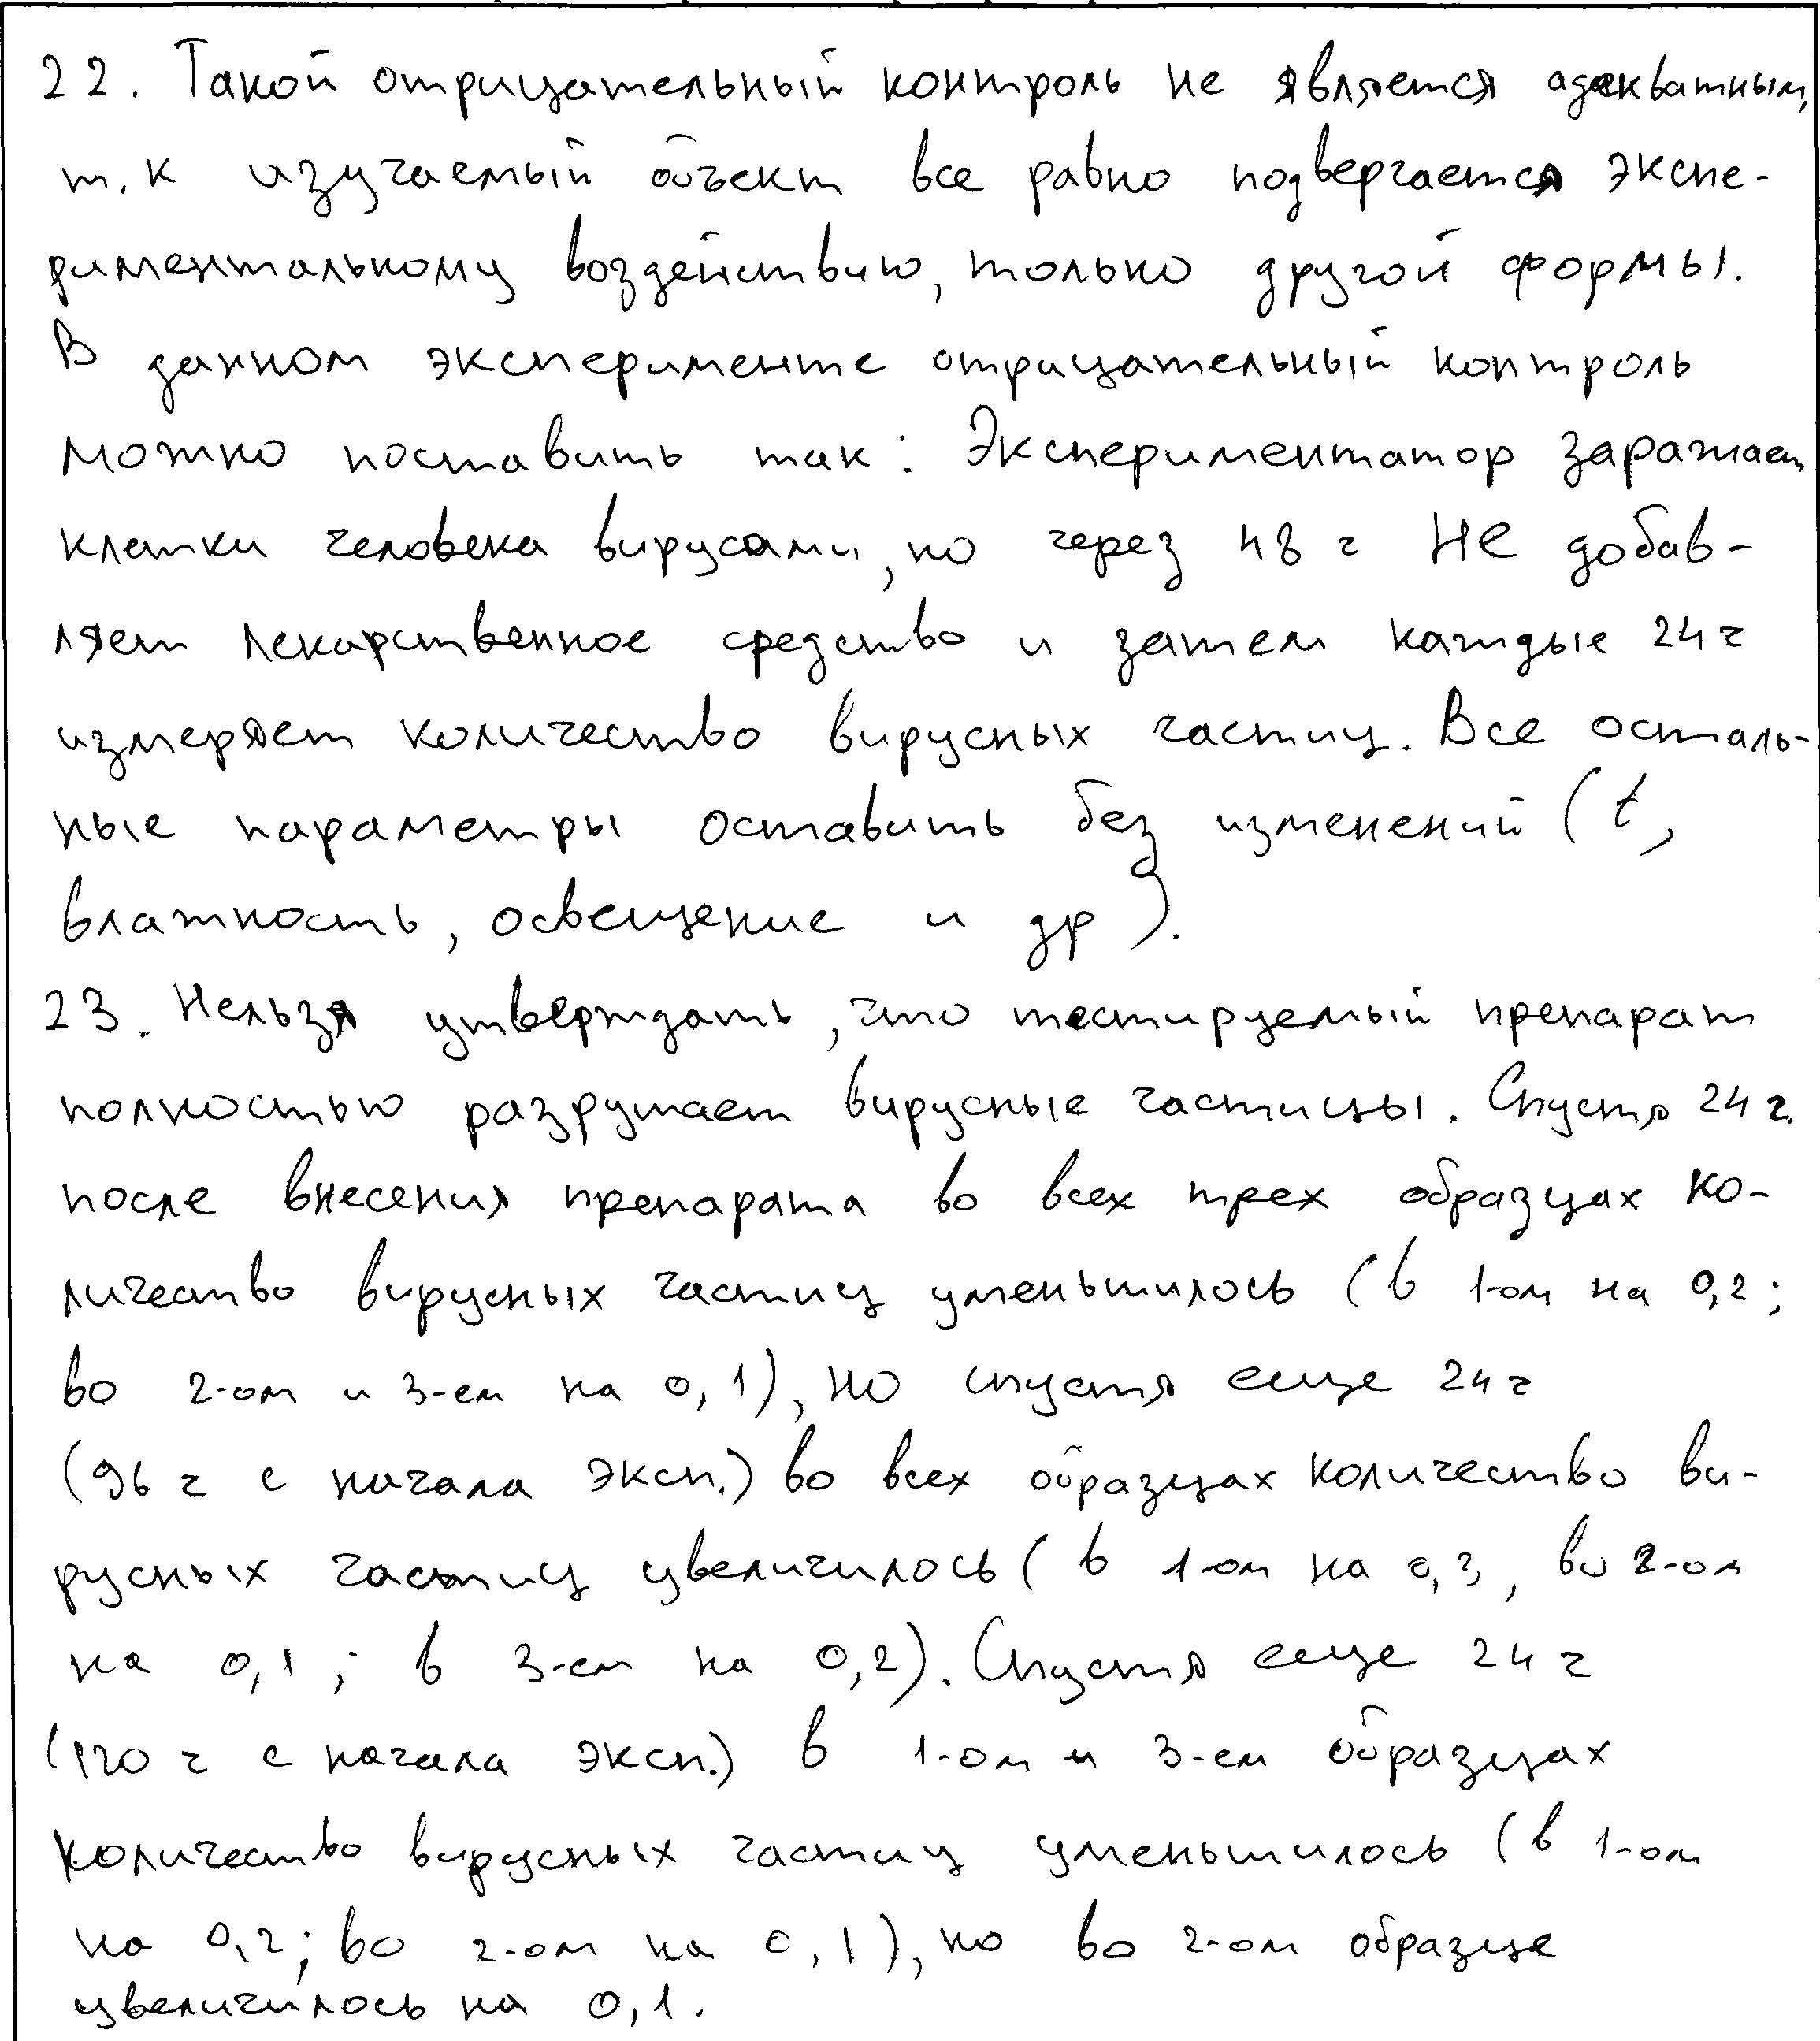 22. Такой отрицательный контроль не является адекватным,
т.к изучаемый объект все равно подвергается экспе-
риментальному воздействию, только другой формы.
В данном эксперименте отрицательный контроль
можно поставить так: Экспериментатор заражает
клетки человека вирусами, но через 48 ч НЕ добав-
ляет лекарственное средство и затем каждые 24 ч
измеряет количество вирусных частиц. Все осталь-
ные параметры оставить без изменений (t,
влажность, освещение и др).
23. Нельзя утверждать, что тестируемый препарат
полностью разрушает вирусные частицы. Спустя 24 ч.
после внесения препарата во всех трех образцах ко-
личество вирусных частиц уменьшилось (в 1-ом на 0,2;
во 2-ом и 3-ем на 0,1), но спустя еще 24 ч
(96 ч с начала эксп.) во всех образцах количество ви-
русных частиц увеличилось (в 1-ом на 0,3, во 2-ом
на 0,1; в 3-ем на 0,2). Спустя еще 24 ч
(120 ч с начала эксп.) в 1-ом и 3-ем образцах
количество вирусных частиц уменьшилось (в 1-ом
на 0,2; во 2-ом на 0,1), но во 2-ом образце
увеличилось на 0,1.